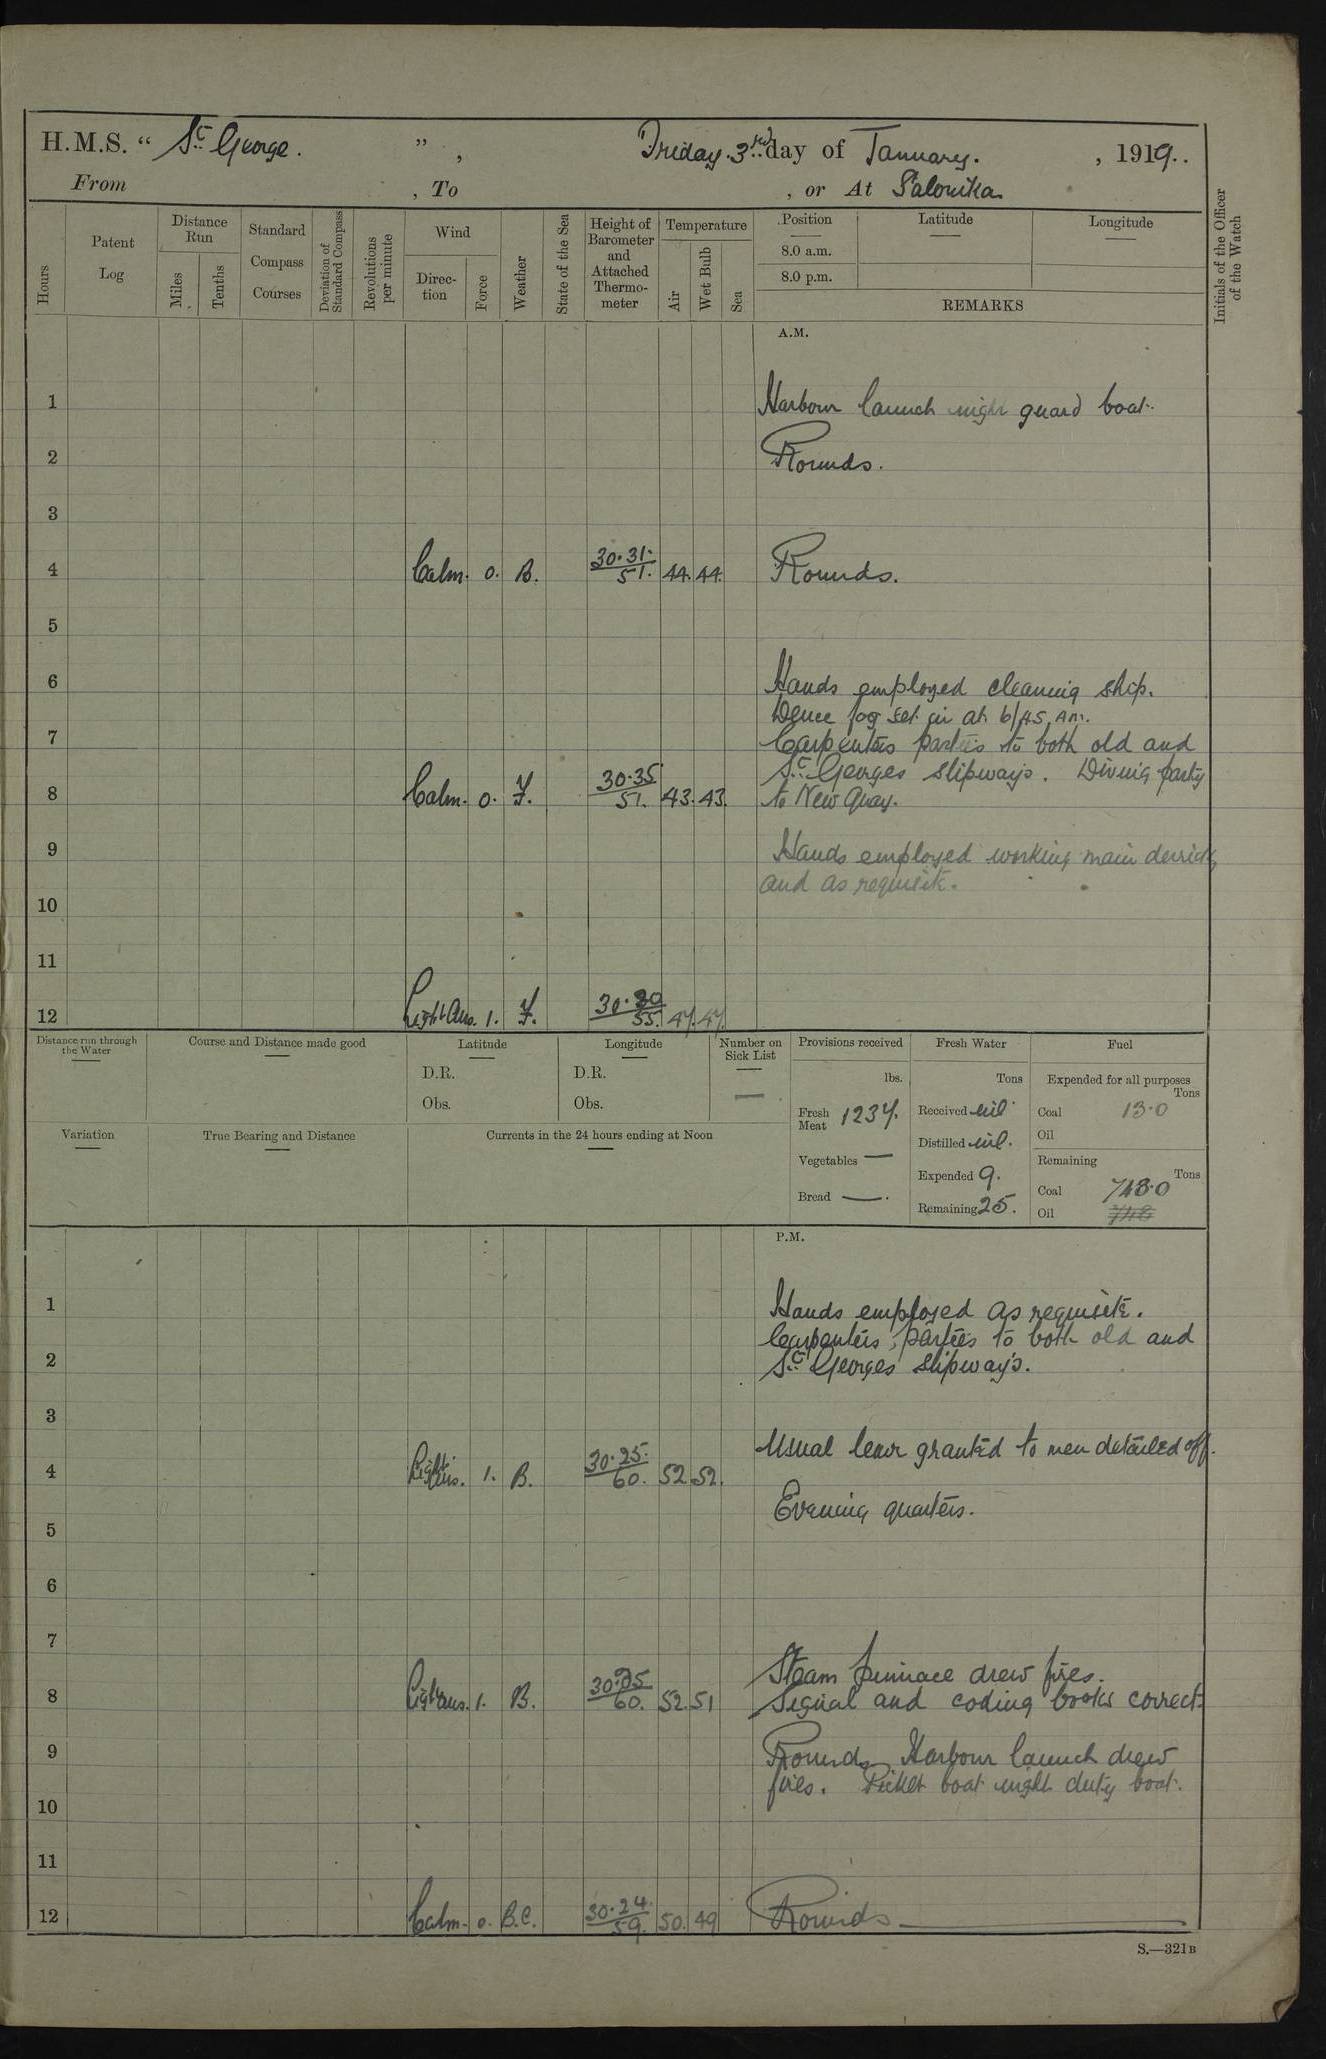 H.M.S. “ St. George. ” , Friday. 3rd day of January. , 1919.
From , To , or At Salonika
Hours
Patent Log
Distance Run
Miles
Tenths
Standard Compass Courses
Deviation of Standard Compass
Revolutions per minute
Wind
Direction
Force
Weather
State of the Sea
Height of Barometer and Attached Thermometer
Temperature
Air
Wet Bulb
Sea
Position Latitude Longitude
8.0 a.m.
8.0 p.m.
REMARKS
Initials of the Officer of the Watch
A.M.
1 Harbour launch night guard boat.
2 Rounds.
3
4 Calm. 0. B. 30.31. 51. 44. 44. Rounds.
5
6 Hands employed cleaning ship.
Dence fog set in at 6/45 AM.
7 Carpenters parties to both old and
St. Georges slipways. Diving party
8 Calm. 0. F. 30.35 51. 43. 43. to New Quay.
9 Hands employed working main derrick
and as requisite.
10
11
12 Light Aus. 1. F. 30.30 55. 47. 47.
Distance run through the Water
Course and Distance made good
Latitude
D.R.
Obs.
Longitude
D.R.
Obs.
Number on Sick List
—
Variation
True Bearing and Distance
Currents in the 24 hours ending at Noon
Provisions received
lbs.
Fresh Meat 1234.
Vegetables —
Bread —.
Fresh Water
Tons
Received nil.
Distilled nil.
Expended 9.
Remaining 25.
Fuel
Expended for all purposes
Tons
Coal 13.0
Oil
Remaining
Tons
Coal 748.0
Oil 748
P.M.
1 Hands employed as requisite.
Carpenters, parties to both old and
2 St. Georges slipways.
3
Usual leave granted to men detailed off.
4 Light Aus. 1. B. 30.25. 60. 52 52.
Evening quarters.
5
6
7
Steam pinnace drew fires.
8 Light aus. 1. B. 30.25 60. 52. 51 Signal and coding books correct.
9 Rounds. Harbour launch drew
fires. Picket boat night duty boat.
10
11
12 Calm. 0. B.C. 30.24. 59. 50. 49 Rounds
S.—321B